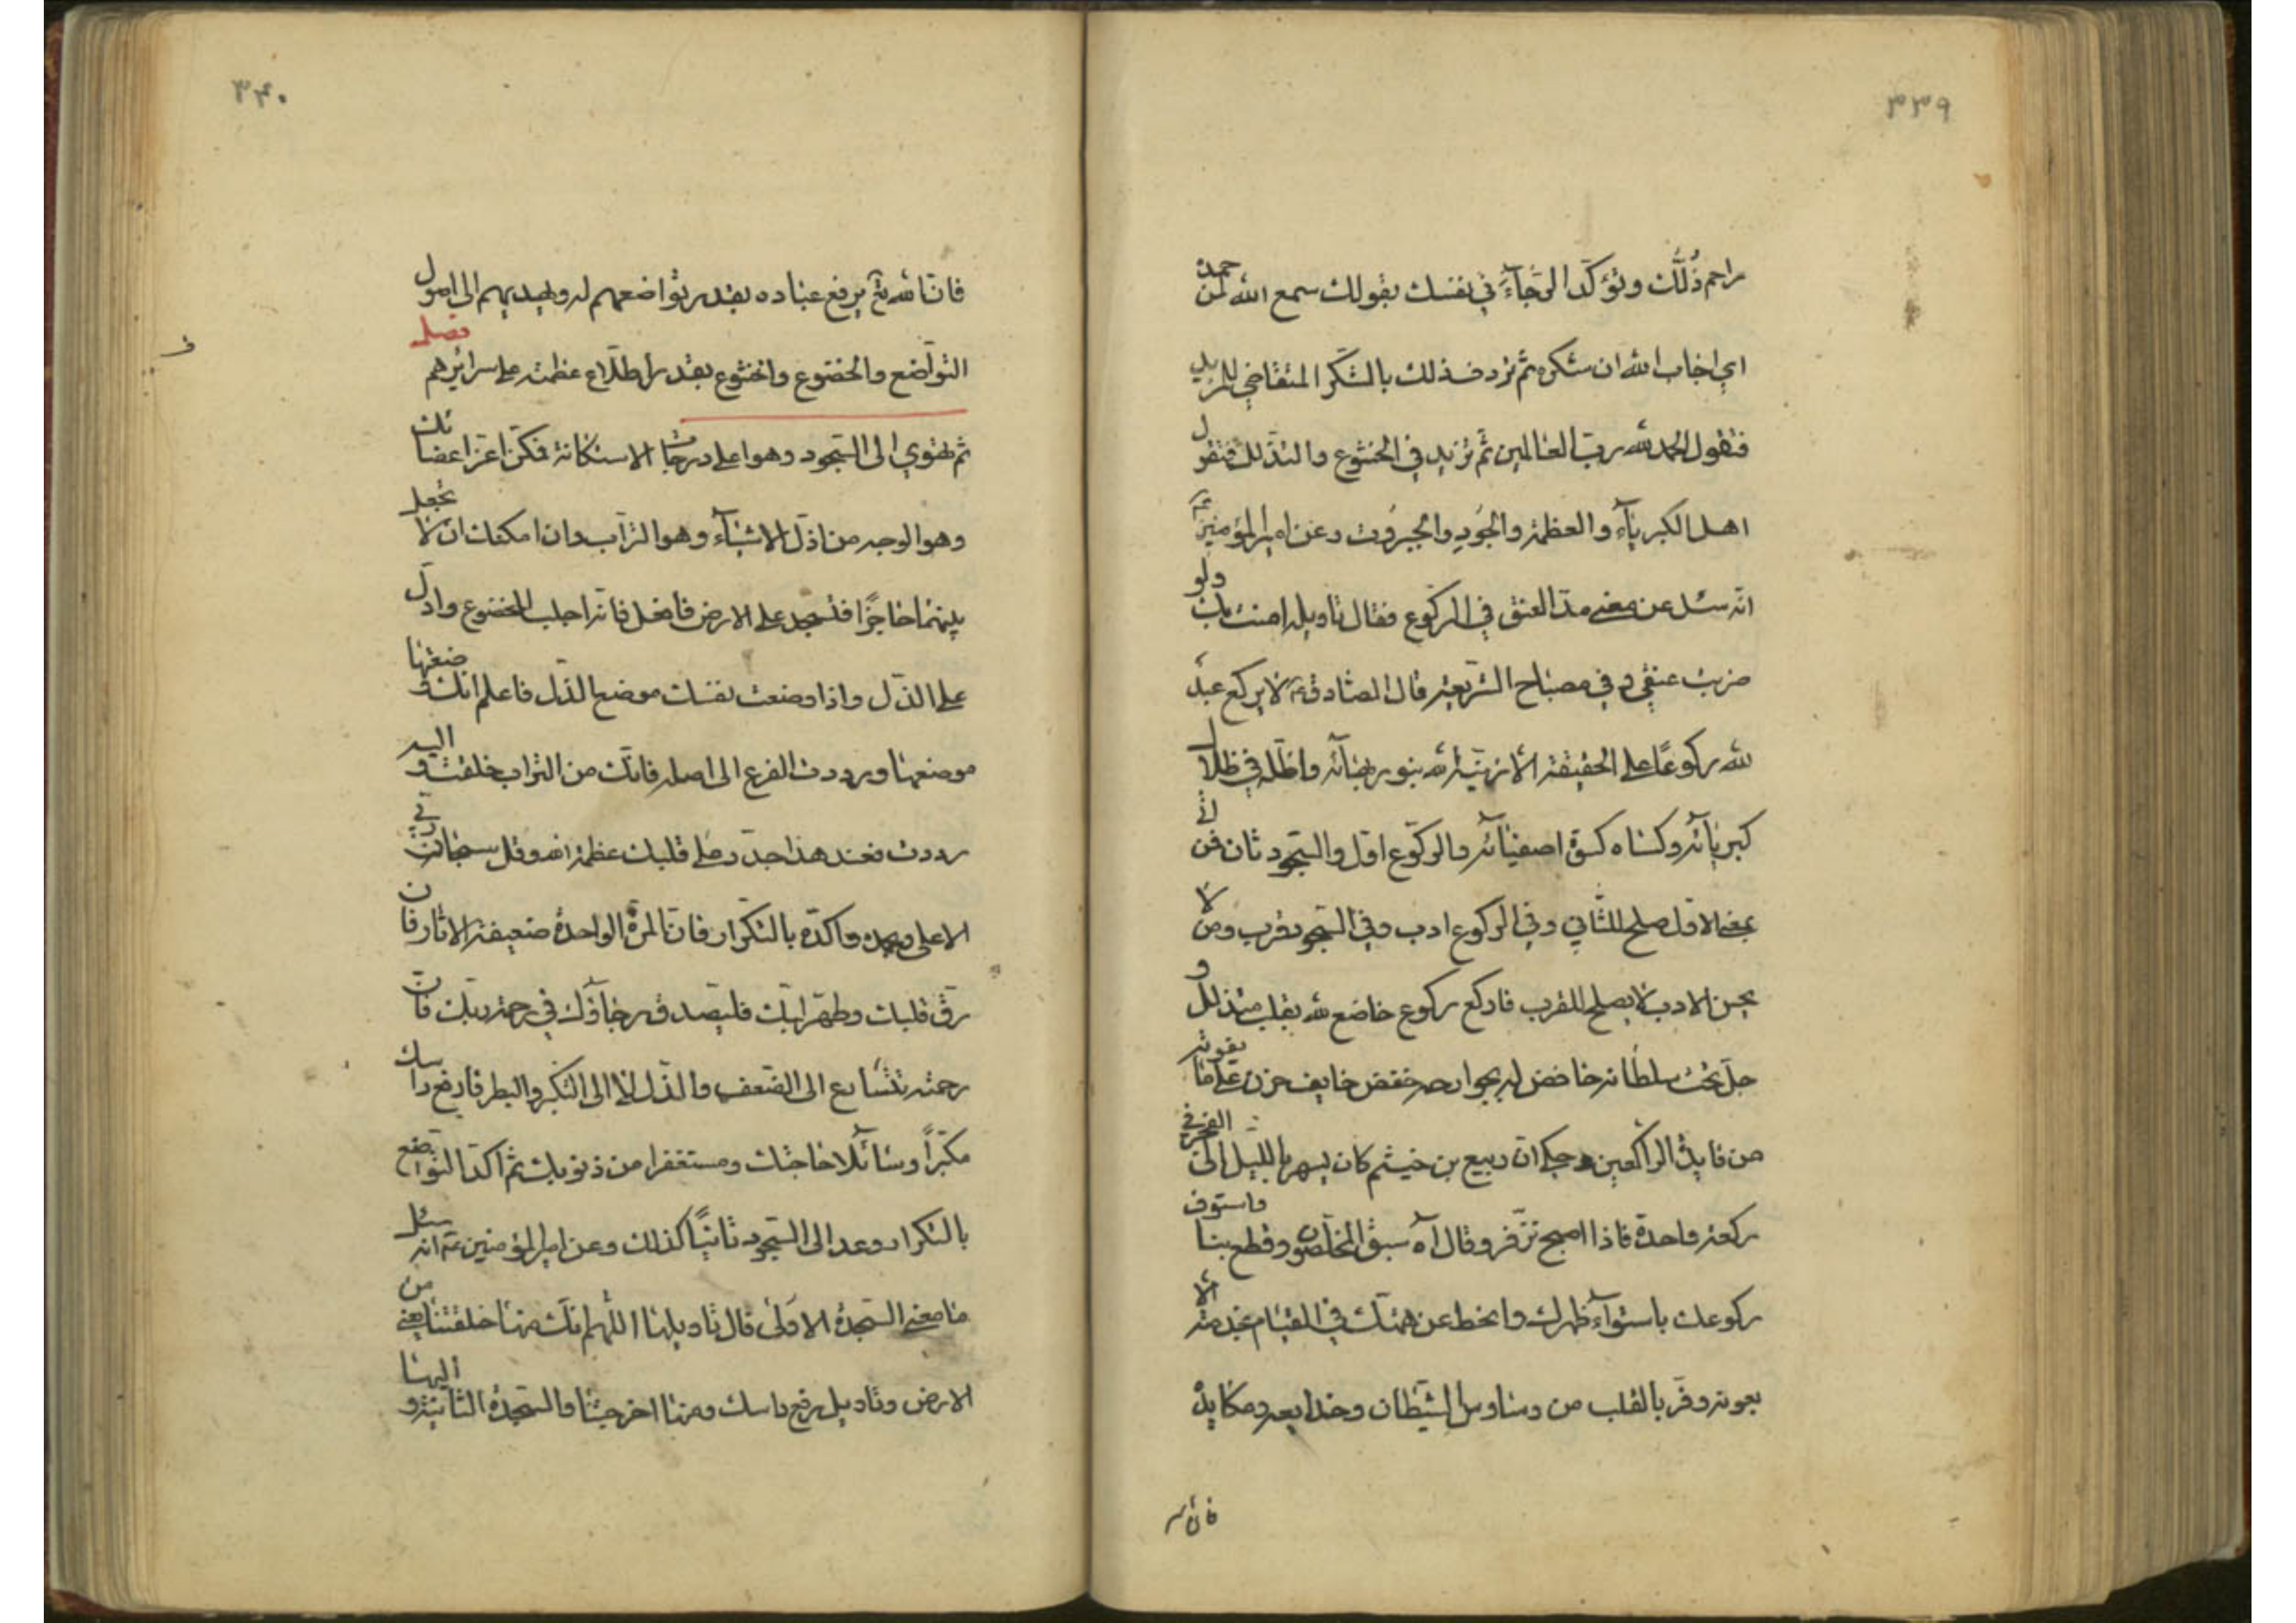 ٣٣٩
راحم ذُلّك وتؤكّد الرّجآء في نفسك بقولك سمع الله لمن حمده
اي اجاب الله ان شكره ثم تردف ذلك بالشّكر المتقاضي للمزيد
فتقول الحمد لله ربّ العالمين ثم تزيد في الخشوع والتذلل فتقول
اهل الكبريآء والعظمة والجود والجبروت وعن امير المؤمنين ع
انّه سئل عن معنى مدّ العنق في الركوع فقال تاويله امنت بك ولو
ضربت عنقي وفي مصباح الشريعة قال الصادق ع لا يركع عبد
لله ركوعًا على الحقيقة الا زيّنه الله بنور بهائه واظلّه في ظلال
كبريآئه وكساه كسوة اصفيآئه والركوع اوّل والسّجود ثان فمن اتى
بمعنى الاول صلح للثّاني وفي الركوع ادب وفي السجود قرب ومن لا
يحسن الادب لا يصلح للقرب فاركع ركوع خاضع لله بقلبه متذلل و
جل تحت سلطانه خافض له بجوارحه خفض خايف حزن على ما يفوته
من فايدة الراكعين وحكي انّ ربيع بن خيثم كان يسهر بالليل الى الفجر في
ركعة واحدة فاذا اصبح تزفّر وقال آه سبق المخلصون وقطع بنا واستوف
ركوعك باستوآء ظهرك وانحط عن همّتك في القيام بخدمته الا
بعونه وفرّ بالقلب من وساوس الشيطان وخدايعه ومكايده
فان الله
٣٤٠
فانّ الله تع يرفع عباده بقدر تواضعهم له ويهديهم الى اصول
التواضع والخضوع والخشوع بقدر اطلاع عظمته على سرائرهم
فصل
ثم تهوي الى السّجود وهو اعلى درجات الاستكانة فمكّن اعزّ اعضائك
وهو الوجه من اذلّ الاشيآء وهو التراب وان امكنك ان لا تجعل
بينهما حاجزًا فتسجد على الارض فافعل فانّه اجلب للخضوع وادلّ
على الذّل واذا وضعت نفسك موضع الذّل فاعلم انّك وضعتها
موضعها ورددت الفرع الى اصله فانّك من التراب خلقت واليه
رددت فعند هذا جدّد على قلبك عظمة الله وقل سبحان ربّي
الاعلى وبحمده واكّده بالتكرار فانّ المرّة الواحدة ضعيفة الاثار فان
رقّ قلبك وطهر لبّك فليصدق رجاؤك في رحمة ربّك فانّ
رحمته تتسارع الى الضّعف والذّل لا الى التكبّر والبطر فارفع راسك
مكبّرًا وسآئلا حاجتك ومستغفرا من ذنوبك ثم اكّد التواضع
بالتكرار وعد الى السّجود ثانيًا كذلك وعن امير المؤمنين ع انه سئل
ما معنى السّجدة الاولى قال تاويلها اللّهم انّك منها خلقتنا يعني من
الارض وتاويل رفع راسك ومنها اخرجتنا والسّجدة الثانية و اليها